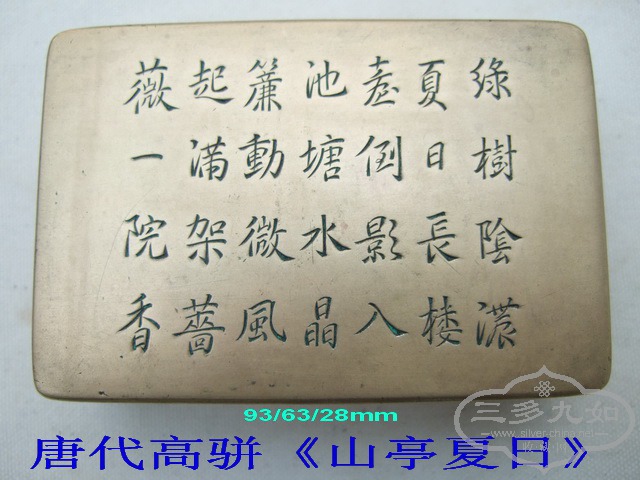 綠樹陰濃
夏日長楼
臺倒影入
池塘水晶
簾動微風
起满架薔
薇一院香
93/63/28mm
唐代高骈《山亭夏日》
三多九如
www.silver-china.net